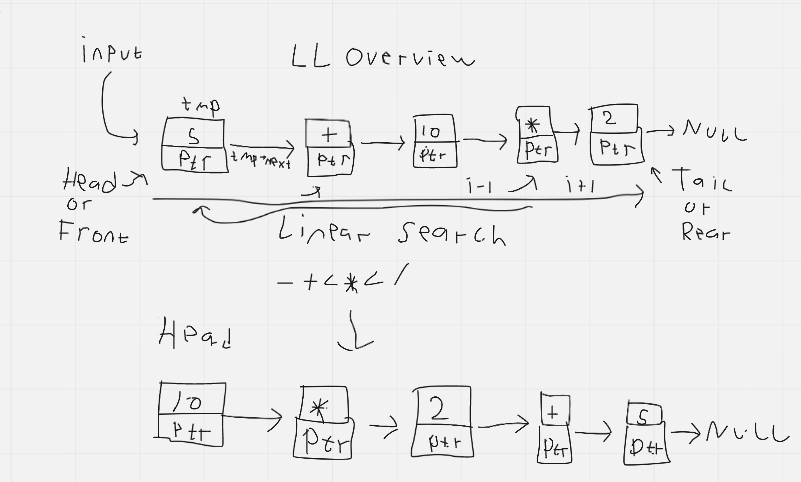 input
LL Overview
tmp
5 + 10 * 2
ptr tmp→next ptr ptr ptr ptr NULL
Head or Front
i-1 i+1
Tail or Rear
Linear Search
- + < * < /
Head
10 * 2 + 5
ptr ptr ptr ptr ptr NULL